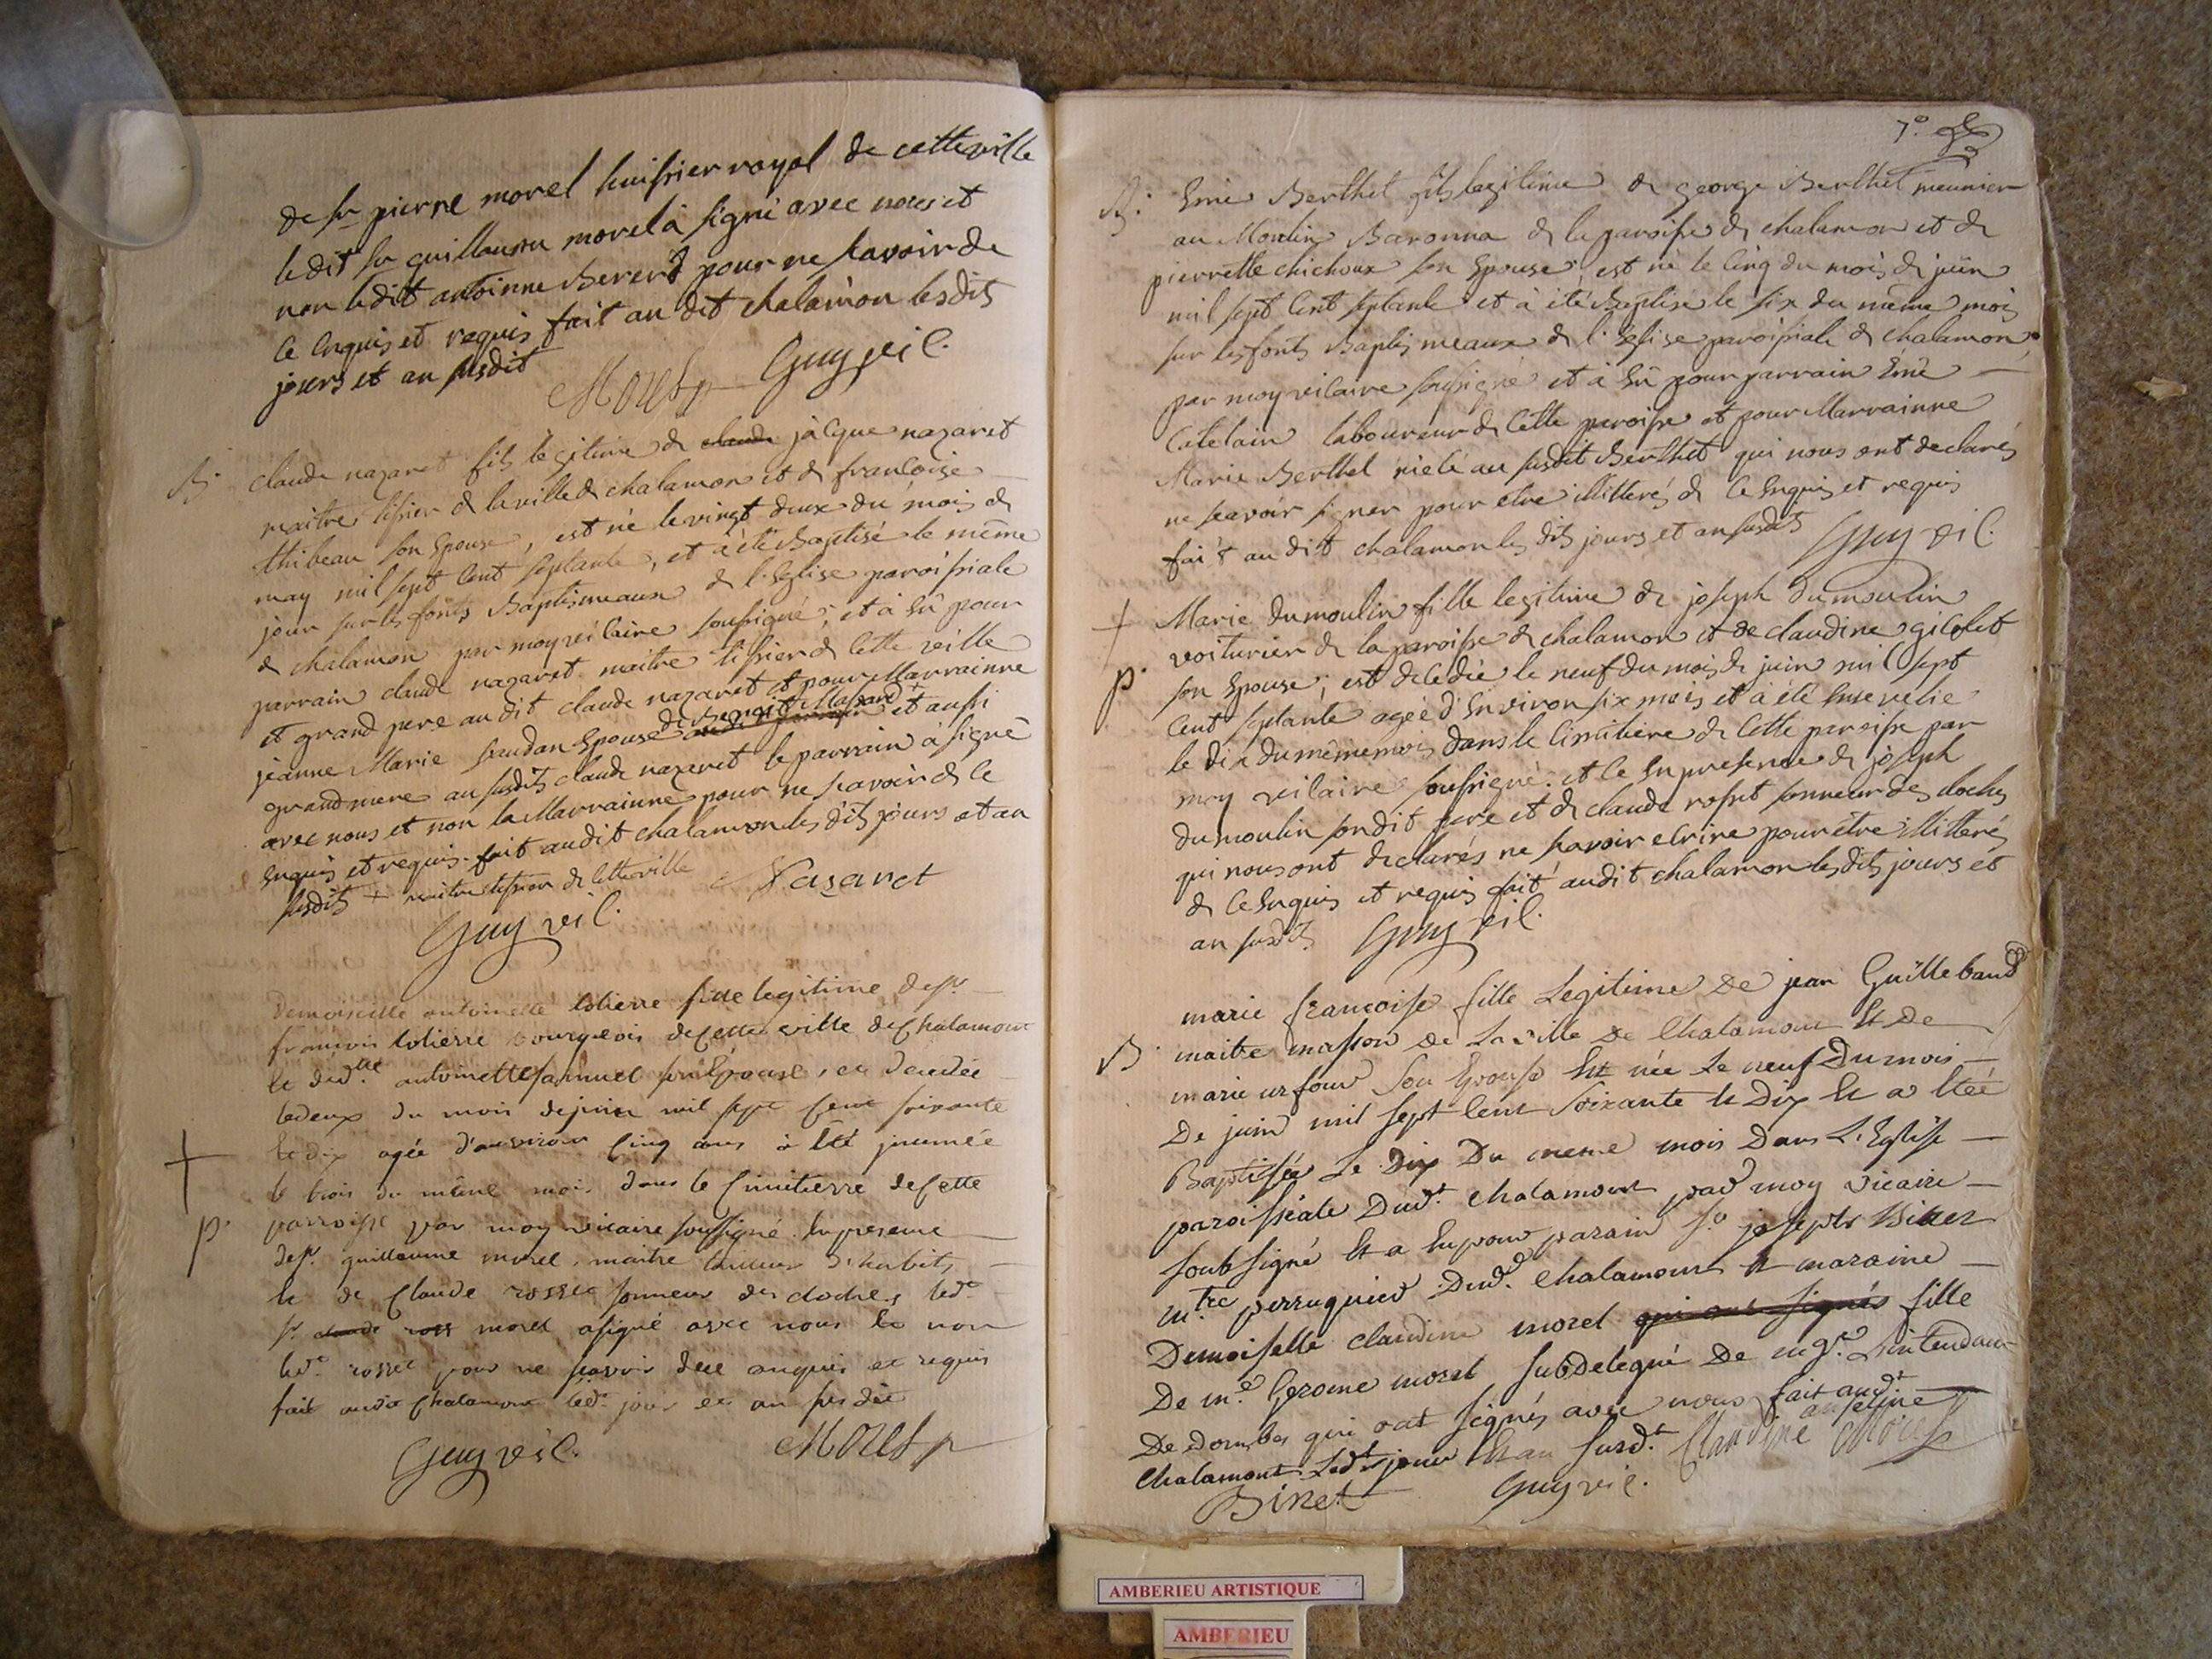 de sr pierre morel huissier royal de cette ville
le dit sr guillaume morel à signé avec nous et
non le dit antoinne Bererd pour ne scavoir de
ce enquis et requis fait au dit chalamon lesdits
jours et an susdit
Morel Guy vic.
B claude nazaret fils legitime de claude jacque nazaret
maitre tissier de la ville de chalamon et de francoise
thibeau son epouse, est né le vingt deux du mois de
may mil sept cent septante, et à été Baptisé le même
jour sur les fonts Baptismeaux de l'eglise paroissiale
de chalamon par moy vicaire soussigné; et à eû pour
parrain claude nazaret maitre tissier de cette ville
et grand pere au dit claude nazaret et pour Marrainne
jeanne Marie Epouse de Benoit Massard + et aussi
grand mere au susdit claude nazaret le parrain à signé
avec nous et non la Marrainne pour ne scavoir de ce
enquis et requis. fait au dit chalamon les dits jours et an
susdits + maitre tissier de cette ville Nazaret
Guy vic.
Demoiselle antoinette loliere fille legitime de sr
francois loliere bourgeois de cette ville de chalamont
et de dlle antoinette samuel son Epouse, est decedée
le deux du mois de juin mil sept cent soixante
+ et dix agée d'anviron cinq ans à été inumée
le trois du même mois dans le cimitierre de cette
p. parroisse par moy vicaire soussigné. En presence
de sr guillaume morel, maitre tailleur d'habits,
et de Claude rosset sonneur des cloches ledt
sr claude ross morel a signé avec nous et non
ledt rosset pour ne scavoir de ce anquis et requis
fait audit Chalamont ledt jour et an susdit
Guy vic. Morel
7e
B: Emé Berthet fils legitime de george Berthet meunier
au Moulin Baronna de la paroisse de chalamon et de
pierrette chichoux son Epouse, est né le cinq du mois de juin
mil sept cent septante et à été Baptisé le six du même mois
sur les fonts Baptismeaux de l'Eglise paroissiale de chalamon
par moy vicaire soussigné et à eû pour parrain Emé
Catelain laboureur de cette paroisse et pour Marrainne
Marie Berthet niece au susdit Berthet qui nous ont declarés
ne scavoir signer pour etre illitterés de ce enquis et requis
fait au dit chalamon les dits jours et an susdits Guy vic.
+ Marie dumoulin fille legitime de joseph dumoulin
voiturier de la paroisse de chalamon et de claudine gicolet
p. son Epouse; est decedée le neuf du mois de juin mil sept
cent septante agée d'environ six mois et à été ensevelie
le dix du même mois dans le Cimitiere de cette paroisse par
moy vicaire soussigné. et ce en presence de joseph
dumoulin son dit pere et de claude rosset sonneur des cloches
qui nous ont declarés ne scavoir ecrire pour être illitterés
de ce enquis et requis fait au dit chalamon les dits jours et
an susdits Guy vic.
marie francoise fille Legitime de jean Guillebaud
B maitre masson de La ville de Chalamont Et de
marie Son Epouse Est née Le neuf Du mois
De juin mil sept Cent Soixante et Dix Et a Eté
Baptisée Le Dix Du meme mois Dans L'Eglise
paroissiale Dudt. Chalamont par moy vicaire
soubsigné Et a Eu pour parain sr joseph Binet
mtre perruquier Dudt. Chalamont Et maraine
Demoiselle claudine morel qui ont signés fille
De me. Gerome morel Subdelegué De mgr. L'intendant
De dombes qui ont signés avec nous fait audt
Chalamont Ledt jour Et an susdt. Claudine Morel
Binet Guy vic.
AMBERIEU ARTISTIQUE
AMBERIEU